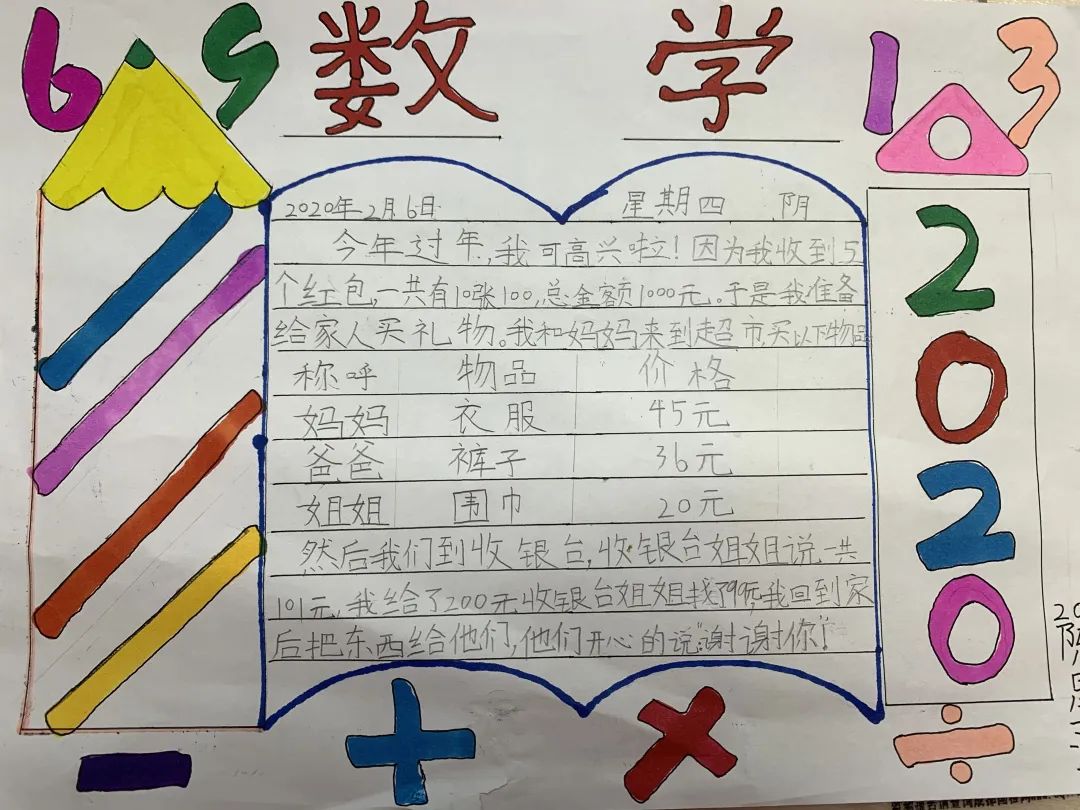 6 5 数学 1 3
2020年2月6日 星期四 阴
今年过年,我可高兴啦!因为我收到5
个红包,一共有10张100,总金额1000元。于是我准备
给家人买礼物。我和妈妈来到超市买以下物品
称呼 物品 价格
妈妈 衣服 45元
爸爸 裤子 36元
姐姐 围巾 20元
然后我们到收银台,收银台姐姐说一共
101元,我给了200元收银台姐姐找了99元,我回到家
后把东西给他们,他们开心的说"谢谢你"!
2020
- + × ÷